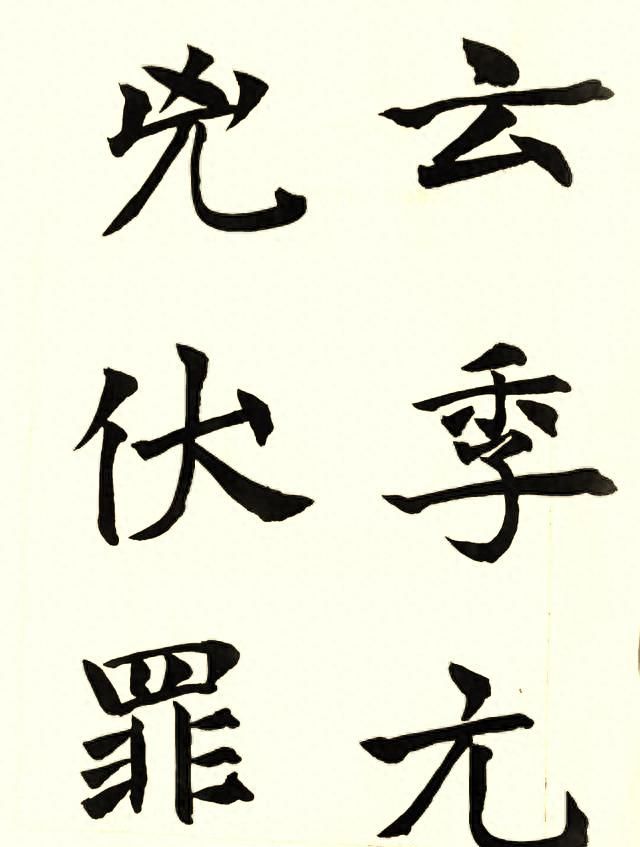 云季元
兇伏罪